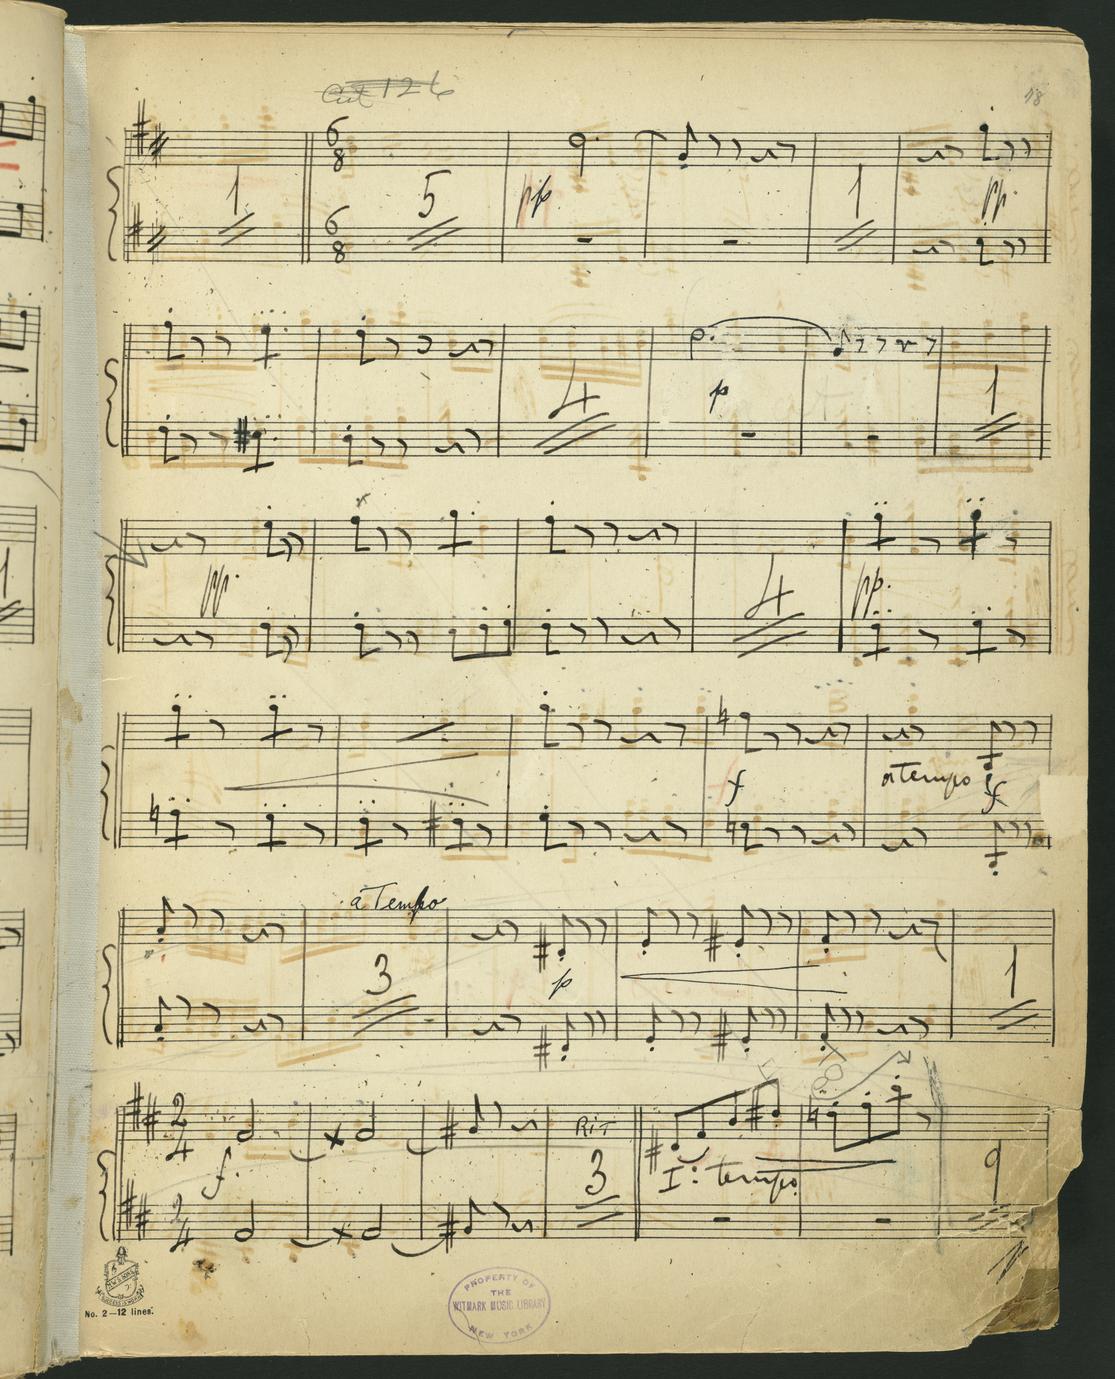 Cut 126
18
6 8
6 8
1
5
pp
1
pp.
4
p
1
pp.
4
pp.
f
a tempo
f
a Tempo
3
p
1
2 4
f.
Rit
3
I: tempo
9
2 4
No. 2—12 lines.
PROPERTY OF
THE
WITMARK MUSIC LIBRARY
NEW YORK